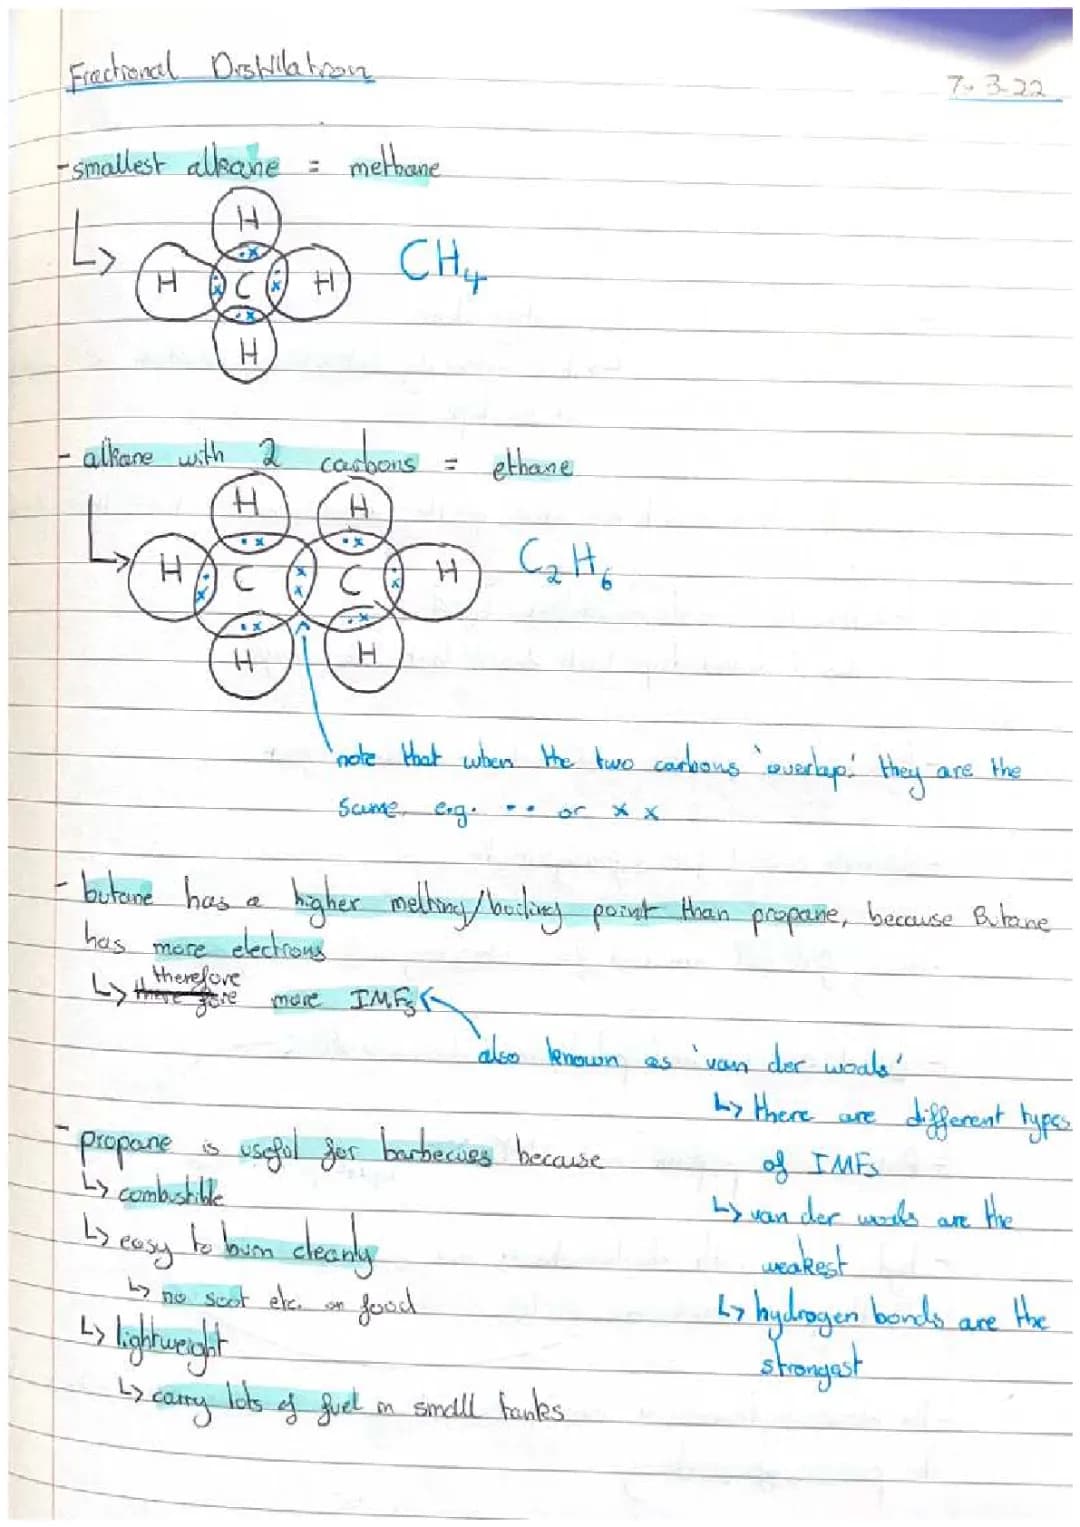 Fractional Distillation
7-3-22
- smallest alkane = methane
H
H C H
H
CH4
- alkane with 2 carbons = ethane
H H
H C C H
H H
C2H6
note that when the two carbons 'overlap' they are the
same, e.g. •• or x x
- butane has a higher melting/boiling point than propane, because Butane
has more electrons
therefore
↳ there fore more IMFs
also known as 'van der waals'
↳ there are different types
of IMFs
↳ van der waals are the
weakest
↳ hydrogen bonds are the
strongest
- propane is useful for barbecues because
↳ combustible
↳ easy to burn cleanly
↳ no soot etc. on food
↳ lightweight
↳ carry lots of fuel in small tanks